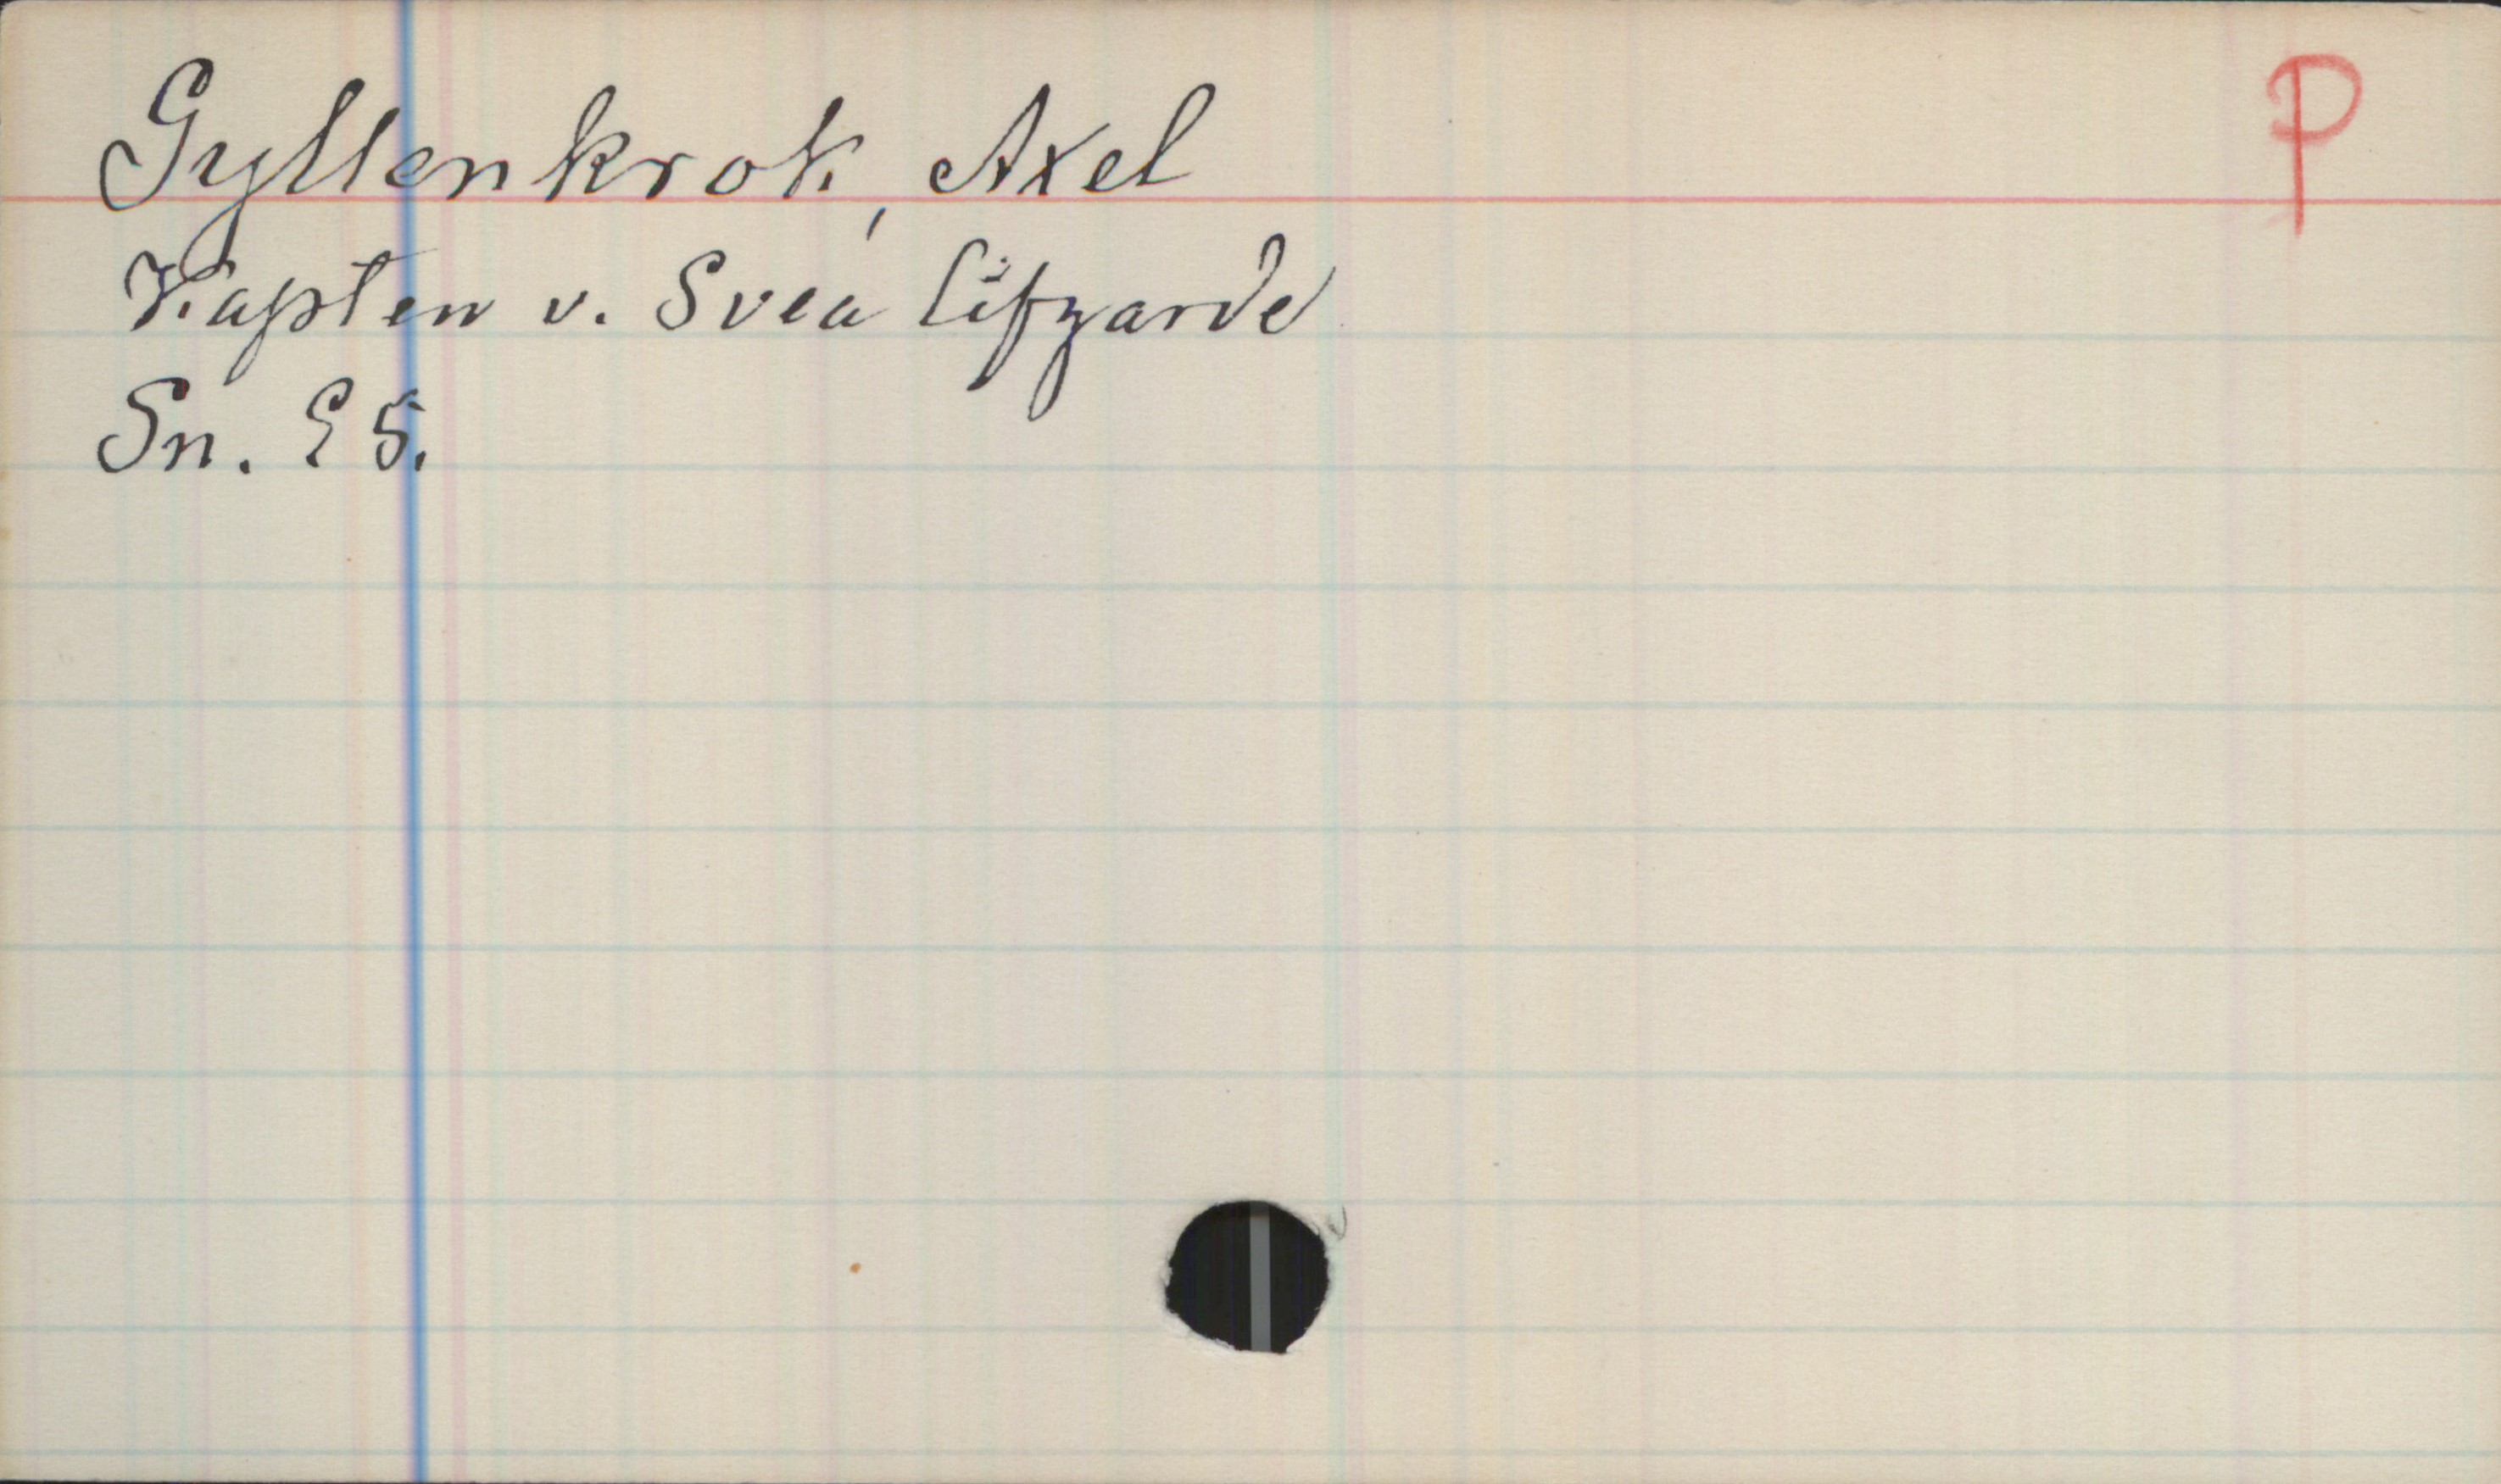 Gyllenkrok, Axel
P
Kapten v. Svea lifgarde
Sn. 25.